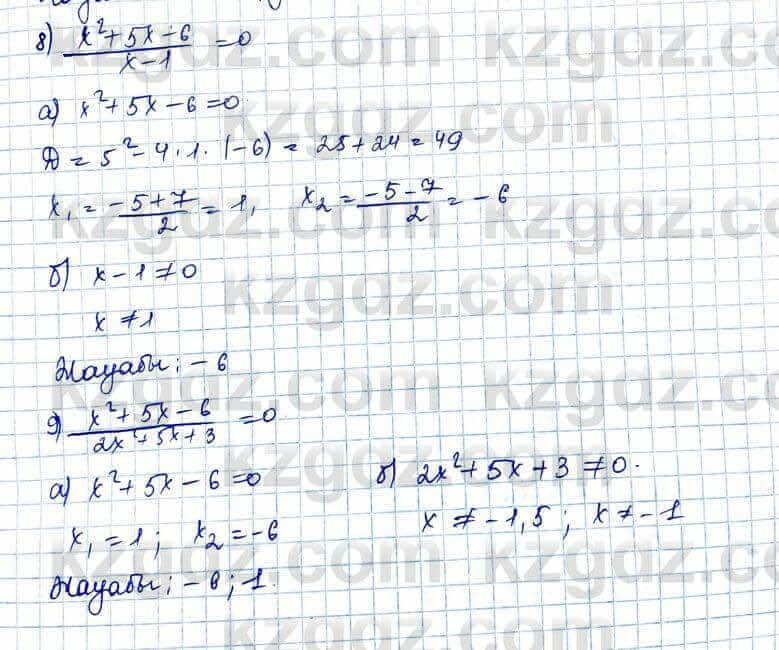 8) (x²+5x-6)/(x-1) =0
а) x²+5x-6=0
D = 5²-4·1·(-6) = 25+24=49
x₁ = (-5+7)/2 = 1, x₂ = (-5-7)/2 = -6
б) x-1≠0
x≠1
Жауабы: -6
9) (x²+5x-6)/(2x²+5x+3) =0
а) x²+5x-6=0 б) 2x²+5x+3≠0.
x₁=1; x₂=-6 x≠-1,5; x≠-1
Жауабы: -6; 1.
kzgdz.com